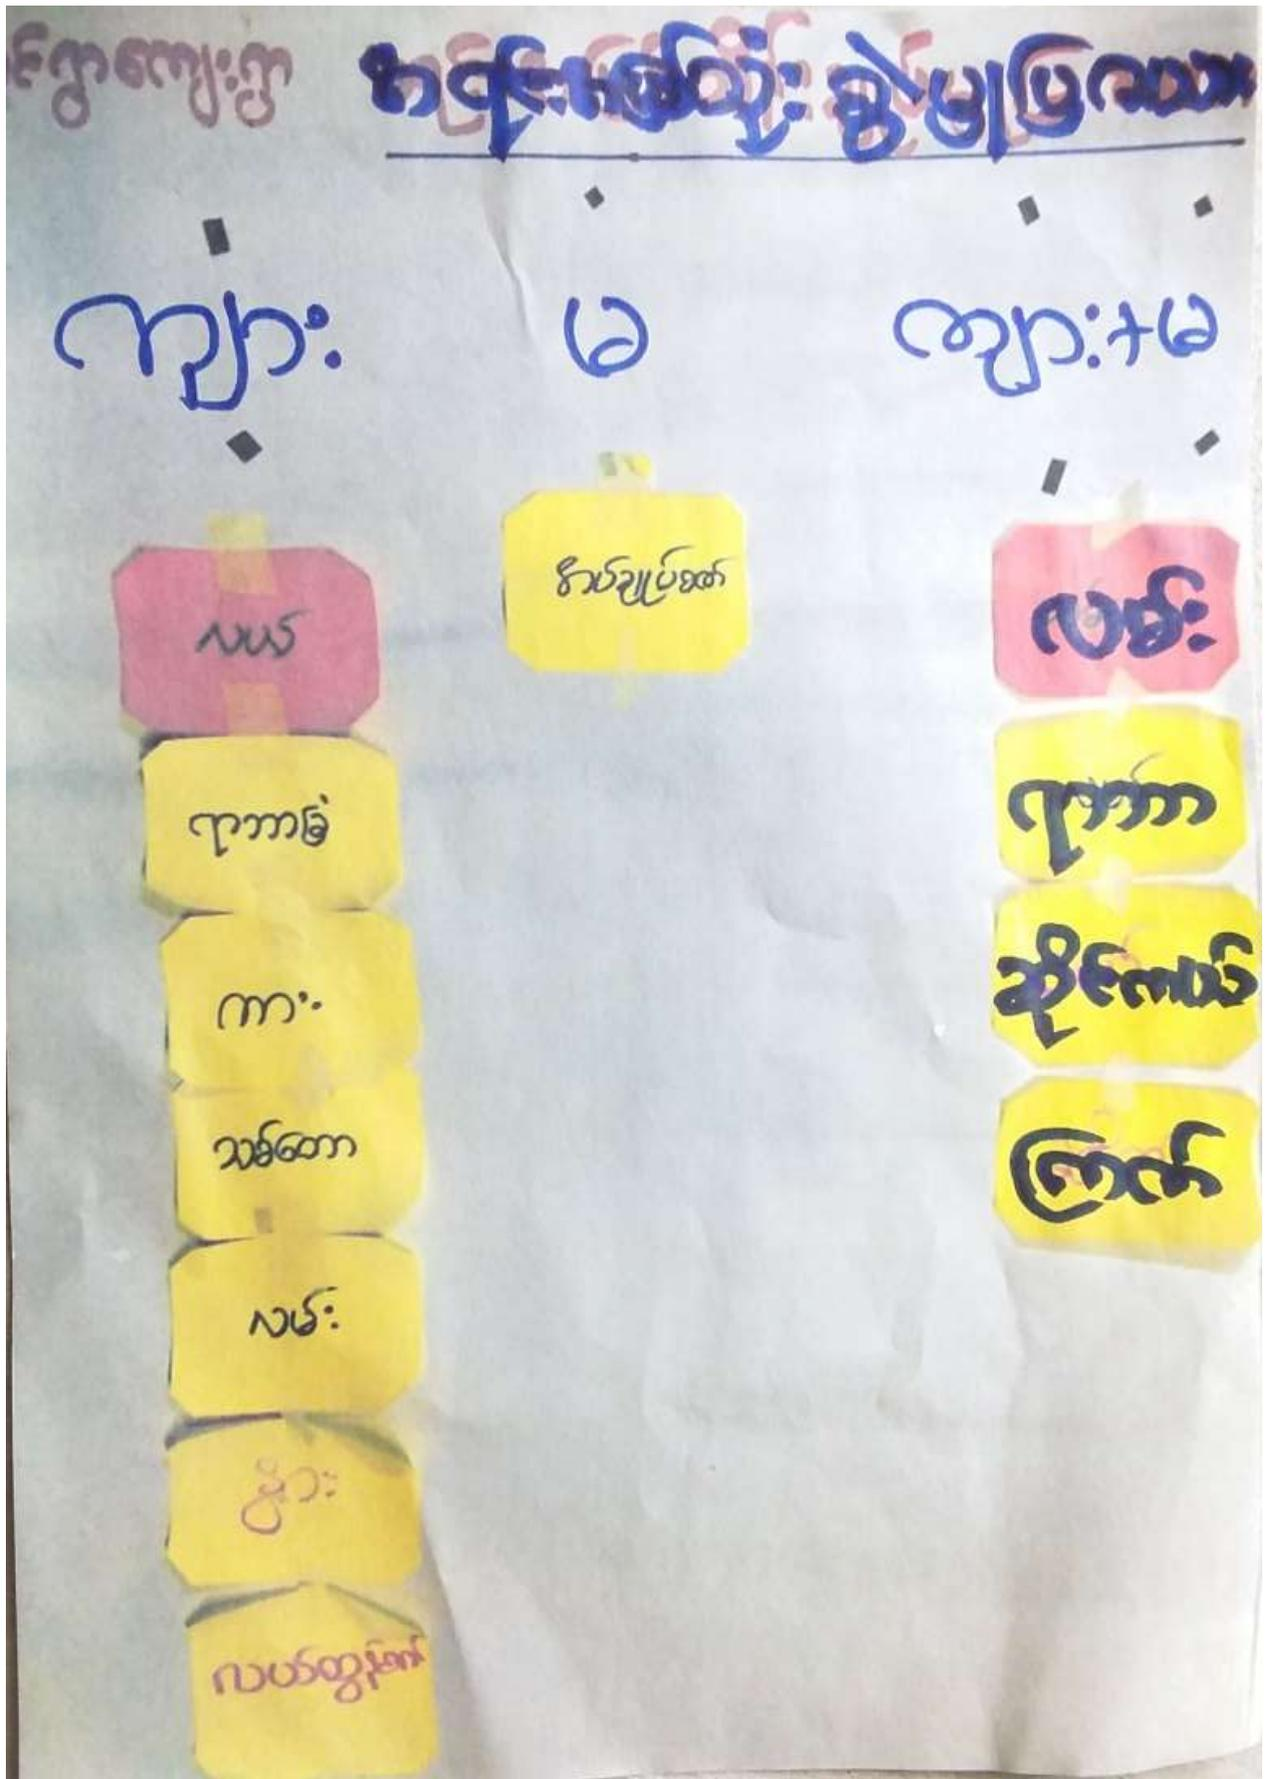 ကျေးရွာ
အရင်းအမြစ်သုံး ခွဲမှုပြဇယား
ကျား မ ကျား+မ
လယ်
ရာဘာခြံ
ကား
သစ်တော
လမ်း
နွား
လယ်ထွန်စက်
စက်ချုပ်စက်
လမ်း
ရာဘာ
ဆိုင်ကယ်
ကြက်